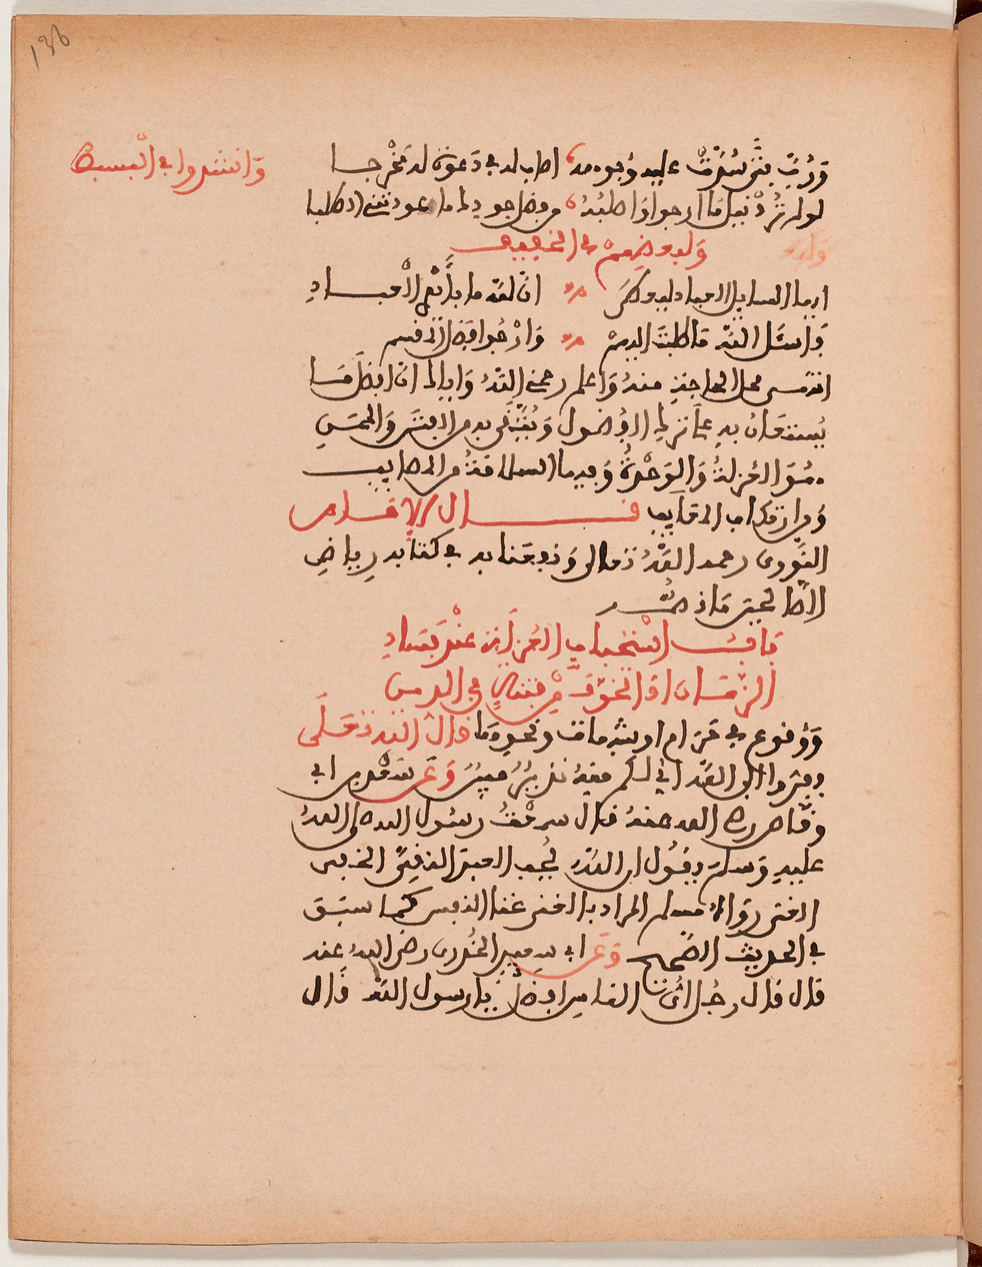 136
وانشدوا في البسيط
ورب فتى سدت عليه وجوهه اصاب له في دعوة له مخرجا
لو لم ترد نيل ما ارجوا واطلبه من فضل جودك ما عودتني الطلبا
ولبعضهم في الخفيف
ايها السايل العباد ليعطى ان لله ما بأيدي العباد
فاسئل الله ما طلبت اليهم وارجوا فضل
انتهى محل الحاجة منه واعلم رحمني الله واياك ان افضل ما
يستعان به على ترك الفضول ويتقى به من الفتن والمحن
هو العزلة والوحدة وفيها السلامة من المصايب
قال الامام
النووي رحمه الله تعالى ونفعنا به في كتابه رياض
الصالحين ما نصه
باب استحباب العزلة عند فساد
الزمان او الخوف من فتنة في الدين
ووقوع في حرام او شبهات ونحوها قال الله تعلى
ففروا الى الله اني لكم منه نذير مبين وعن سعد بن ابي
وقاص رضي الله عنه قال سمعت رسول الله صلى الله
عليه وسلم يقول ان الله يحب العبد التقي الخفي
الغني رواه مسلم المراد بالغني غنا النفس كما سبق
في الحديث الصحيح وعن ابي سعيد الخدري رضي الله عنه
قال قال رجل اي الناس افضل يارسول الله قال